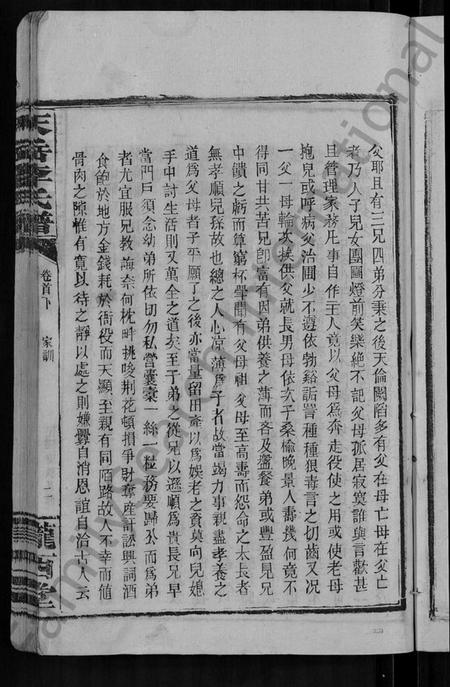 父耶且有三兄四弟分爨之後天倫闕陷多有父在母亡母在父亡
者乃人子兒女團圞燈前笑樂絶不記父母孤居寂寞誰與言歡甚
且管理家務凡事自作主人竟以父母爲奔走役使之用或使老母
抱兒或呼病父治圃少不遵依勃谿詬詈種種狠毒言之切齒又况
一父一母輪次挨供父就長男母依次子桑榆晚景人壽幾何竟不
得同甘共苦兄卽富有因弟供養之薄而吝及盤餐弟或豐盈見兄
中饋之虧而簞窮杯斝間有父母祖父母至高壽而怨命之太長者
無孝順兒孫故也總之人心凉薄爲子者故當竭力事親盡孝養之
道爲父母者子平願了之後亦當量留田產以爲娛老之資莫向兒媳
手中討生活則又萬全之道矣至于弟之從兄以遜順爲貴長兄早
當門戶須念幼弟所依切勿私營囊橐一絲一粒務要歸公而爲弟
者尤宜服兄教誨奈何枕畔挑唆荆花頓損爭財奪產計訟興詞酒
食飽於地方金錢耗於衙役而天顯至親有同陌路故人不幸而值
骨肉之隙惟有寬以待之靜以處之則嫌釁自消恩誼自洽古人云
天岳李氏譜
卷首下
家訓
二
隴西堂